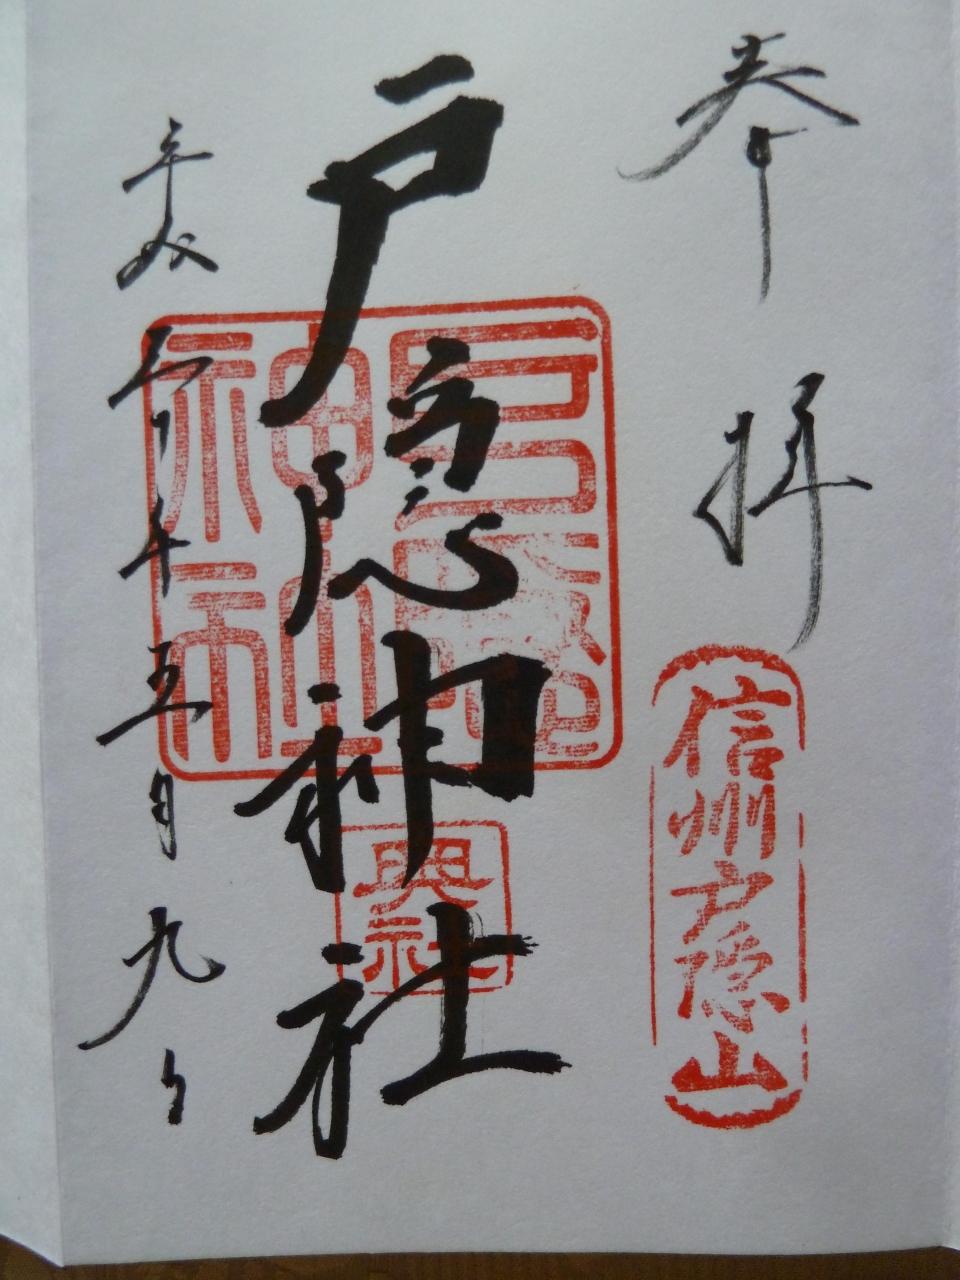 奉拝
信州戸隠山
戸隠神社
戸隠神社
奥社
平成三十年五月九日